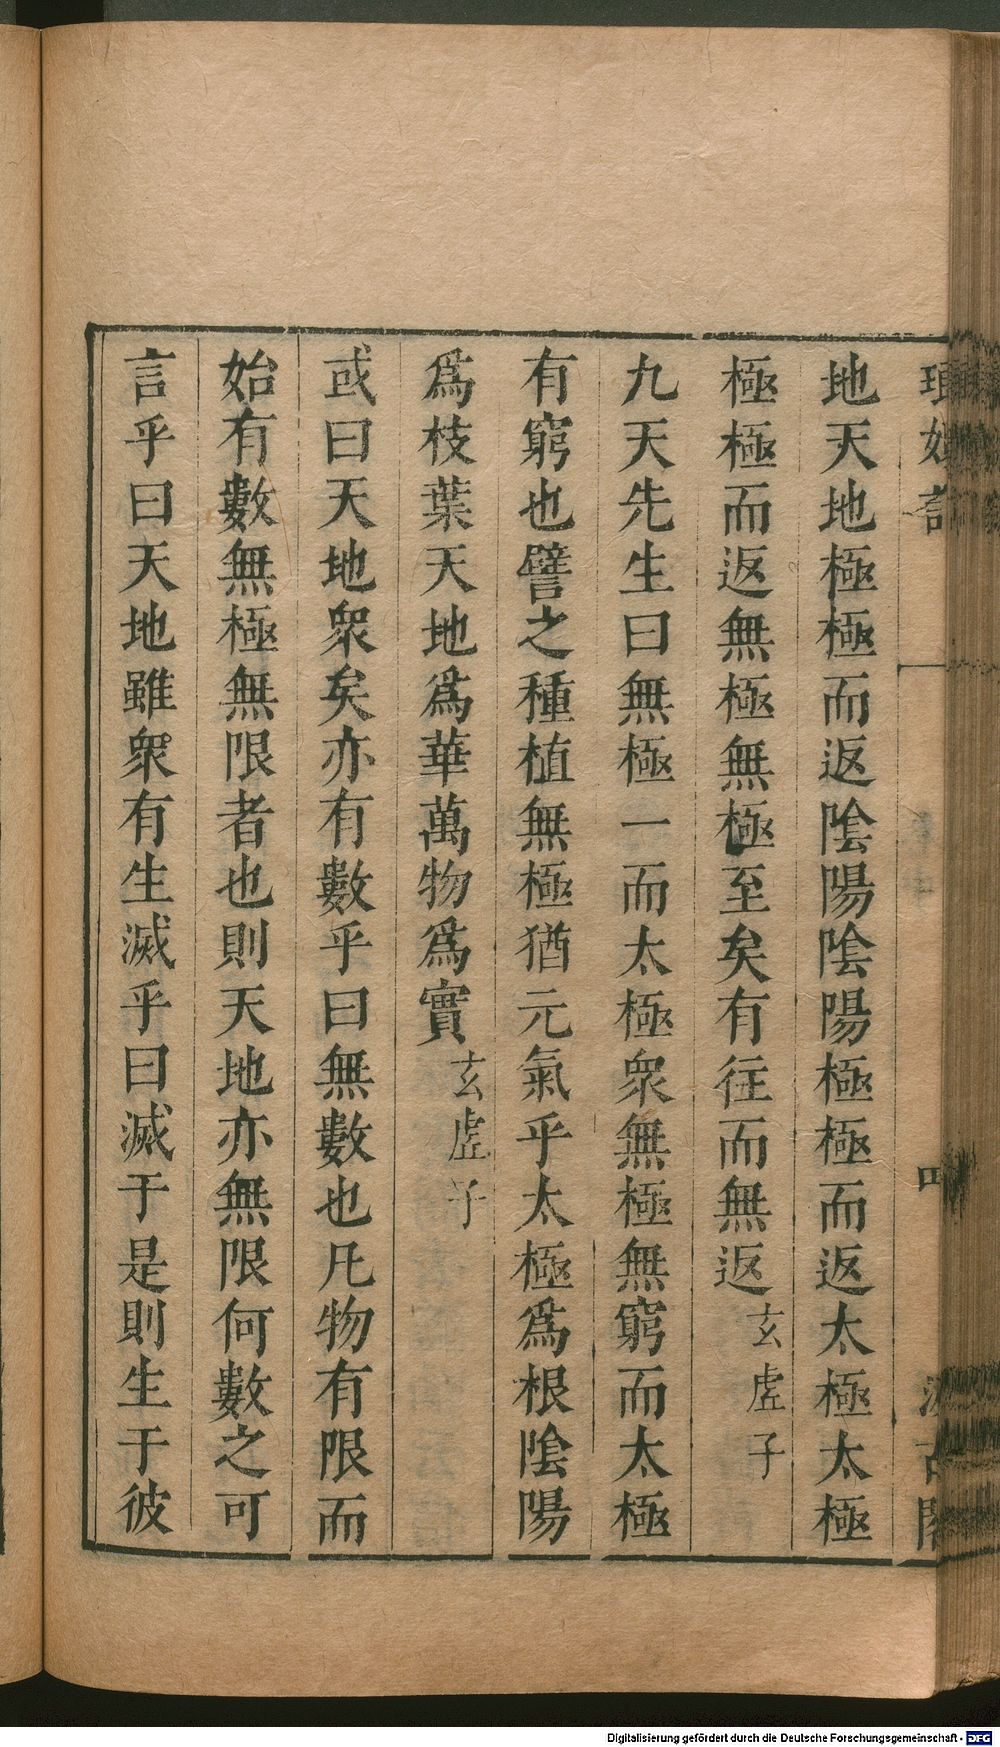 地天地極極而返陰陽陰陽極極而返太極太極
極極而返無極無極至矣有往而無返玄虛子
九天先生曰無極一而太極衆無極無窮而太極
有窮也譬之種植無極猶元氣乎太極爲根陰陽
爲枝葉天地爲華萬物爲實玄虛子
或曰天地衆矣亦有數乎曰無數也凡物有限而
始有數無極無限者也則天地亦無限何數之可
言乎曰天地雖衆有生滅乎曰滅于是則生于彼
Digitalisierung gefördert durch die Deutsche Forschungsgemeinschaft - DFG